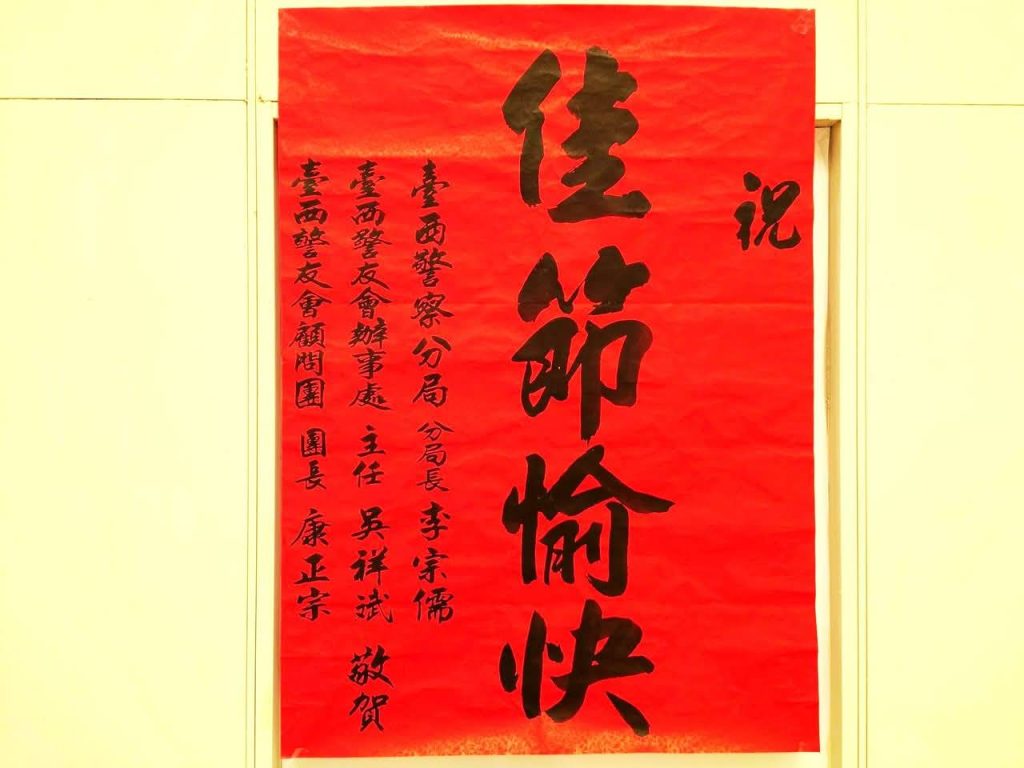 祝
佳節愉快
臺西警察分局 分局長 李宗儒
臺西警友會辦事處 主任 吳祥斌 敬賀
臺西警友會顧問團 團長 康正宗